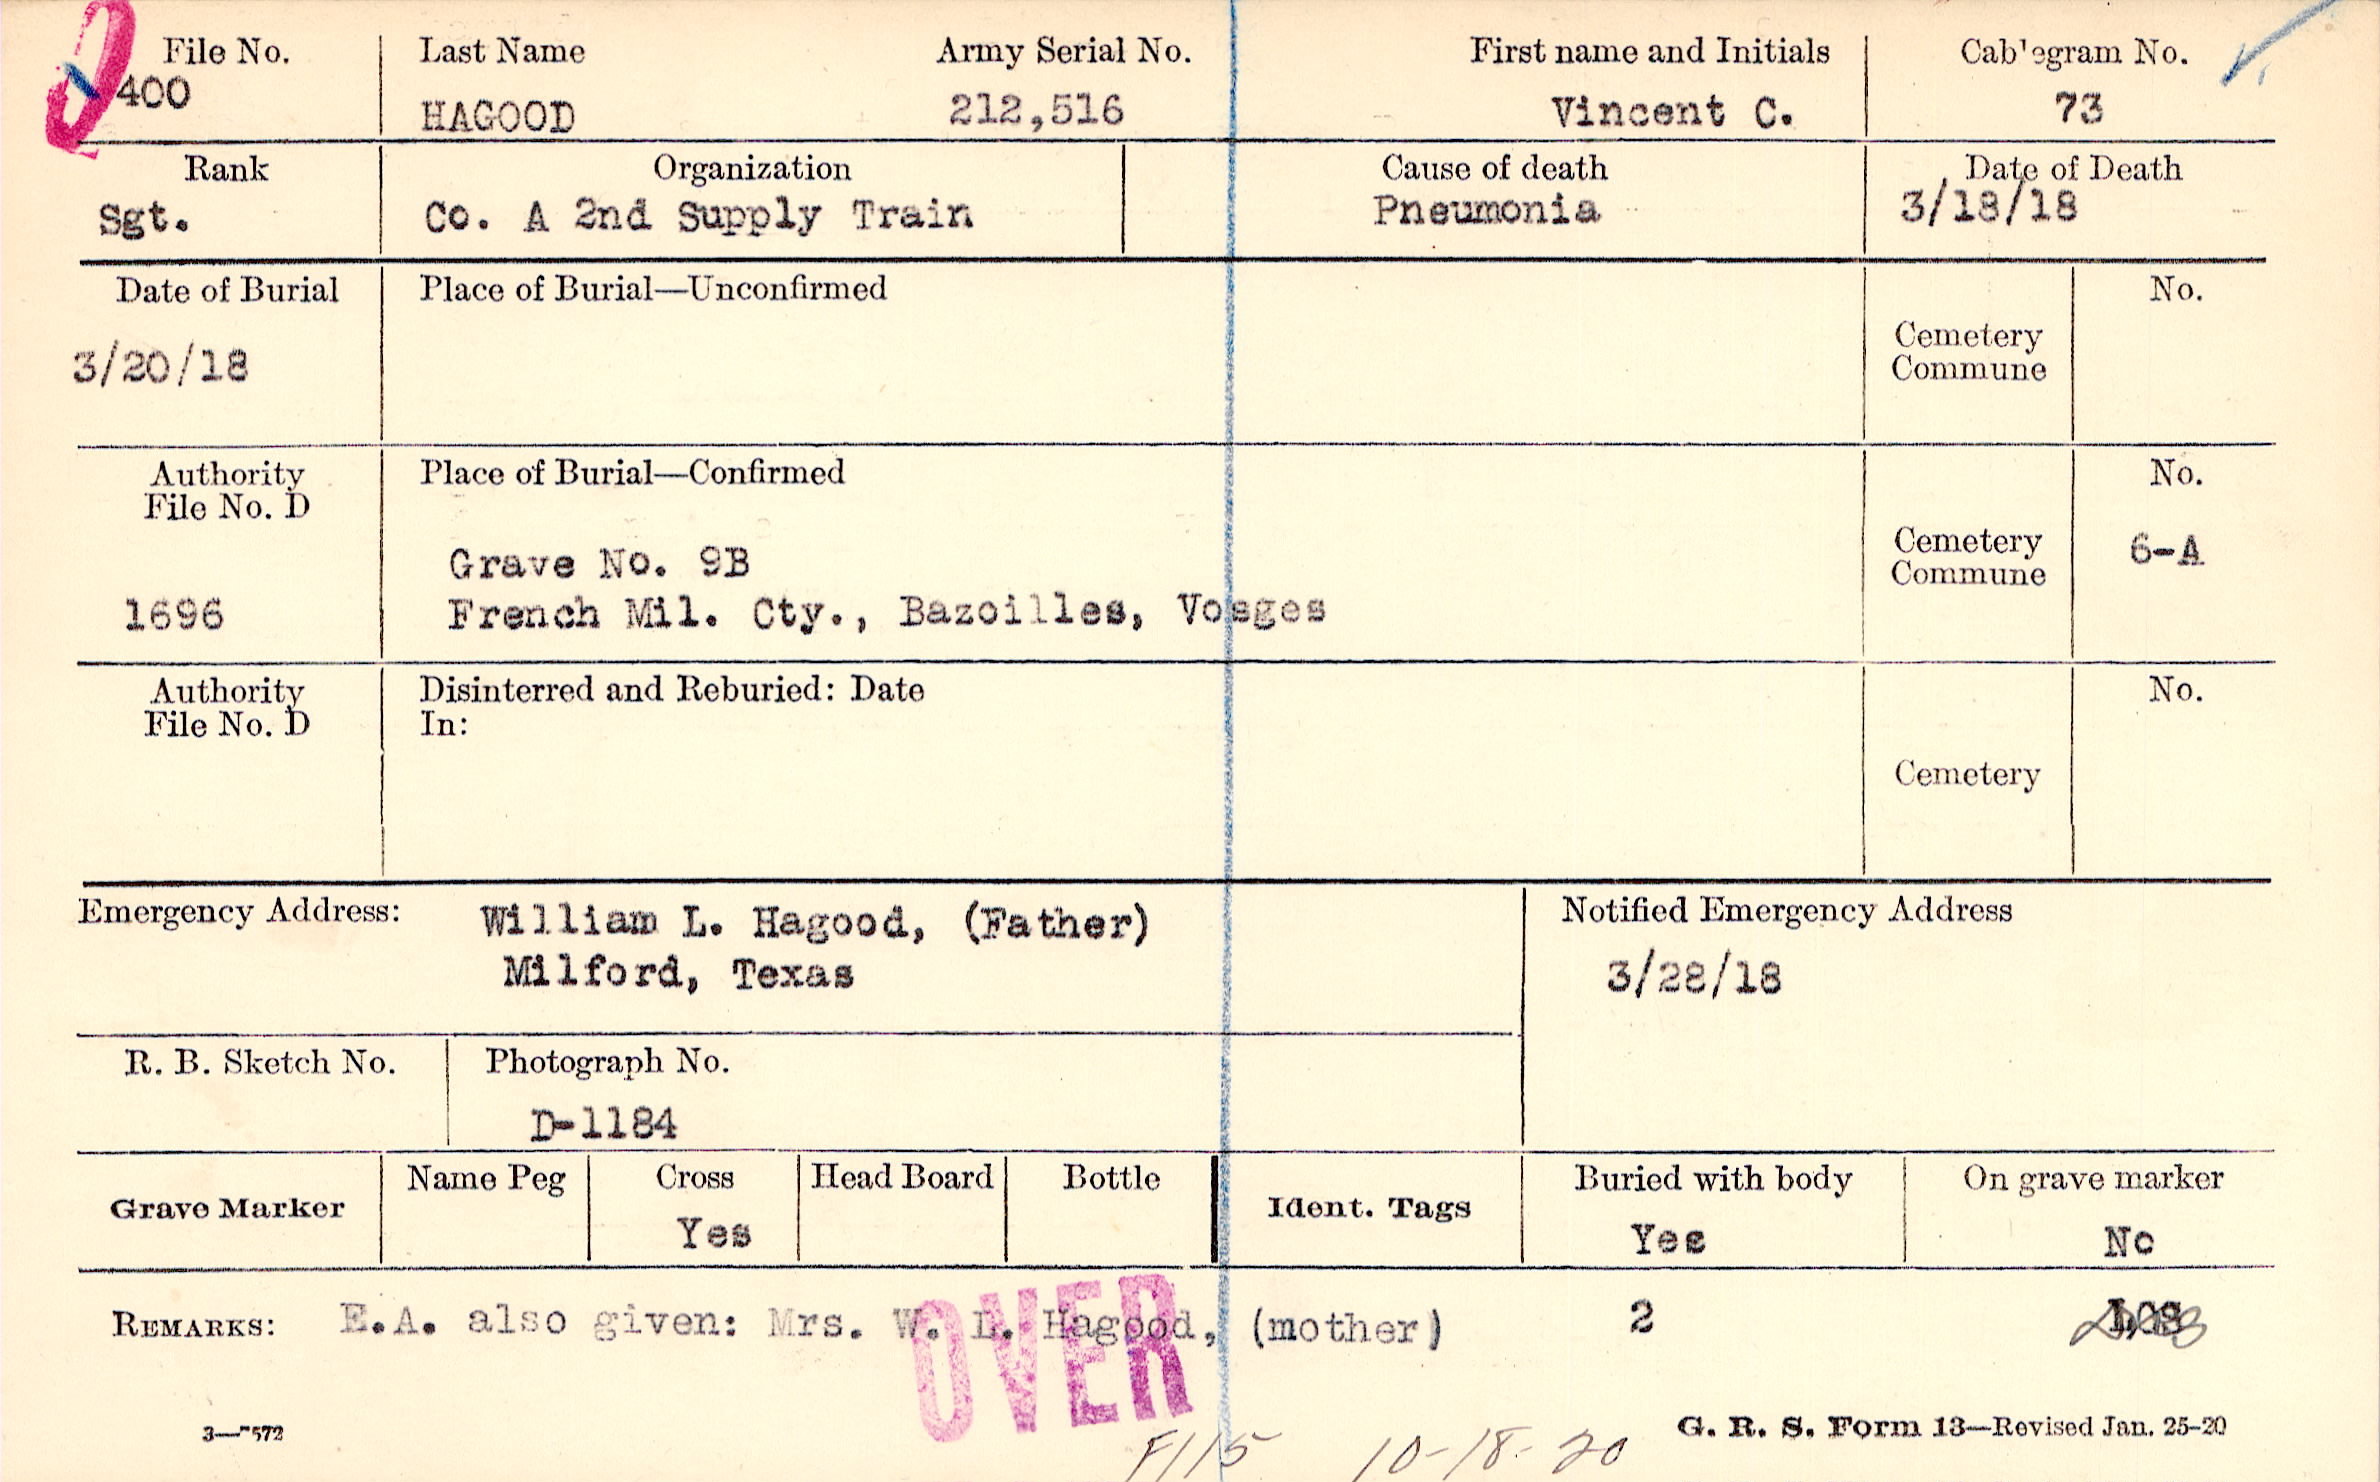 File No. Last Name Army Serial No. First name and Initials Cablegram No.
400 HAGOOD 212,516 Vincent C. 73
Rank Organization Cause of death Date of Death
Sgt. Co. A 2nd Supply Train Pneumonia 3/18/18
Date of Burial Place of Burial—Unconfirmed No.
Cemetery
Commune
3/20/18
Authority Place of Burial—Confirmed No.
File No. D
Cemetery
Commune
6-A
Grave No. 9B
1696 French Mil. Cty., Bazoilles, Vosges
Authority Disinterred and Reburied: Date No.
File No. D In:
Cemetery
Emergency Address: William L. Hagood, (Father) Notified Emergency Address
Milford, Texas 3/28/18
R. B. Sketch No. Photograph No.
D-1184
Grave Marker Name Peg Cross Head Board Bottle Ident. Tags Buried with body On grave marker
Yes Yes No
REMARKS: E.A. also given: Mrs. W. L. Hagood, (mother) 2
OVER
3—7572 G. R. S. Form 13—Revised Jan. 25-20
F115 10-18-20